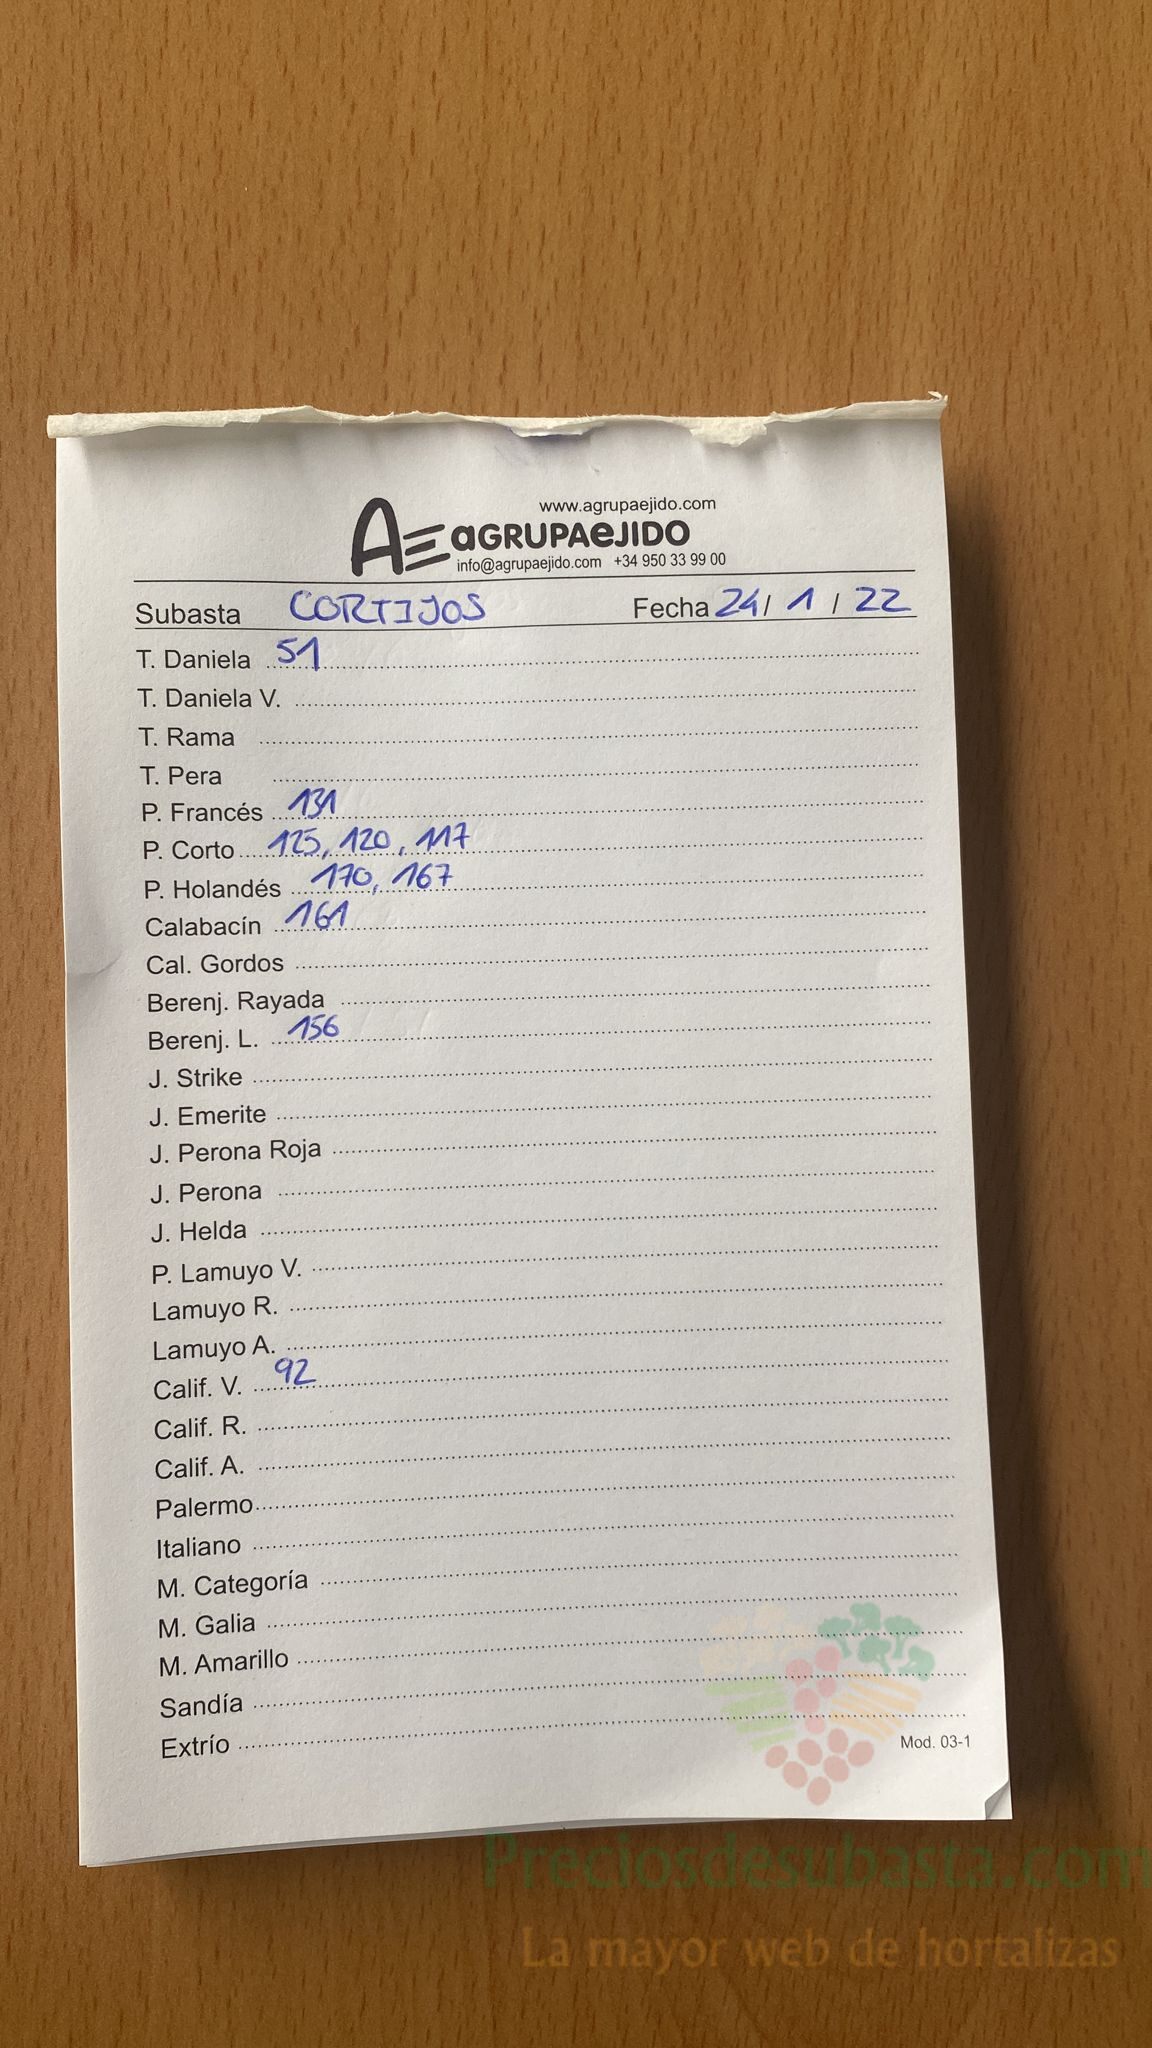 www.agrupaejido.com
AE aGRUPAeJIDO
info@agrupaejido.com +34 950 33 99 00
Subasta CORTIJOS Fecha 24/ 1 / 22
T. Daniela 51
T. Daniela V.
T. Rama
T. Pera
P. Francés 131
P. Corto 125, 120, 117
P. Holandés 170, 167
Calabacín 161
Cal. Gordos
Berenj. Rayada
Berenj. L. 156
J. Strike
J. Emerite
J. Perona Roja
J. Perona
J. Helda
P. Lamuyo V.
Lamuyo R.
Lamuyo A.
Calif. V. 92
Calif. R.
Calif. A.
Palermo
Italiano
M. Categoría
M. Galia
M. Amarillo
Sandía
Extrío
Mod. 03-1
Preciosdesubasta.com
La mayor web de hortalizas